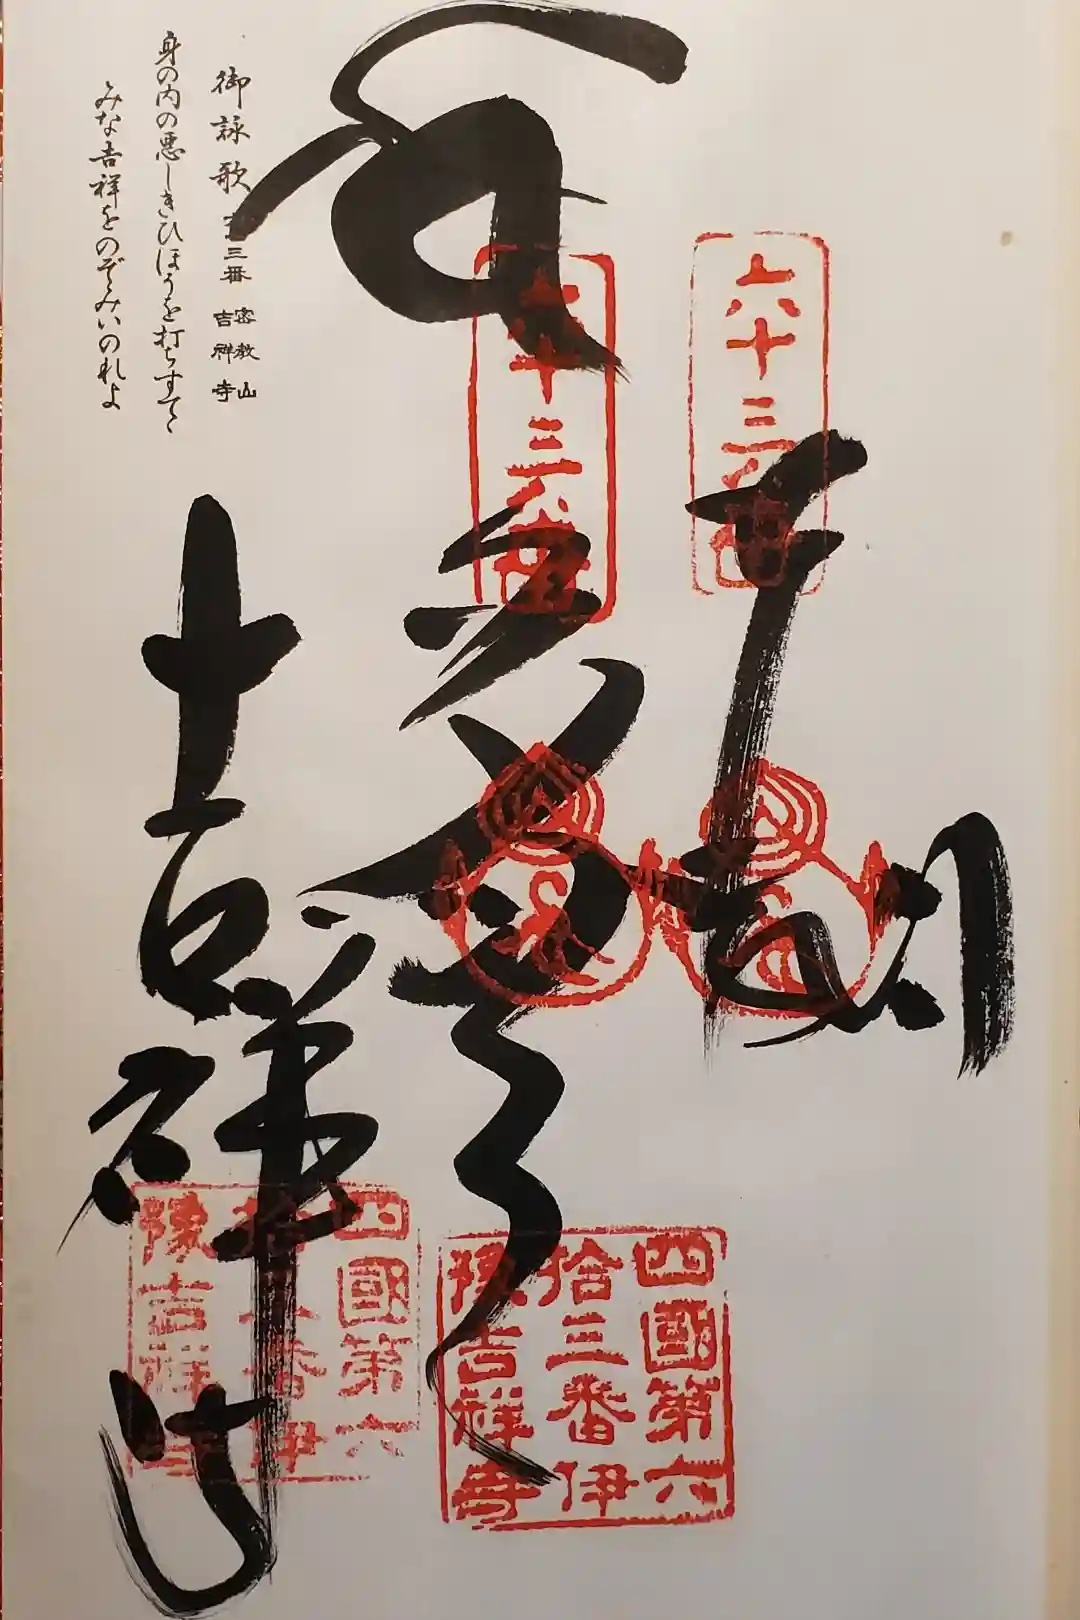 六十三番
六十三番
吉祥寺
四國第六
拾三番伊
豫吉祥寺
四國第六
拾三番伊
豫吉祥寺
御詠歌 六十三番 密教山 吉祥寺
身の内の悪しきひほうを打ちすてて
みな吉祥をのぞみいのれよ